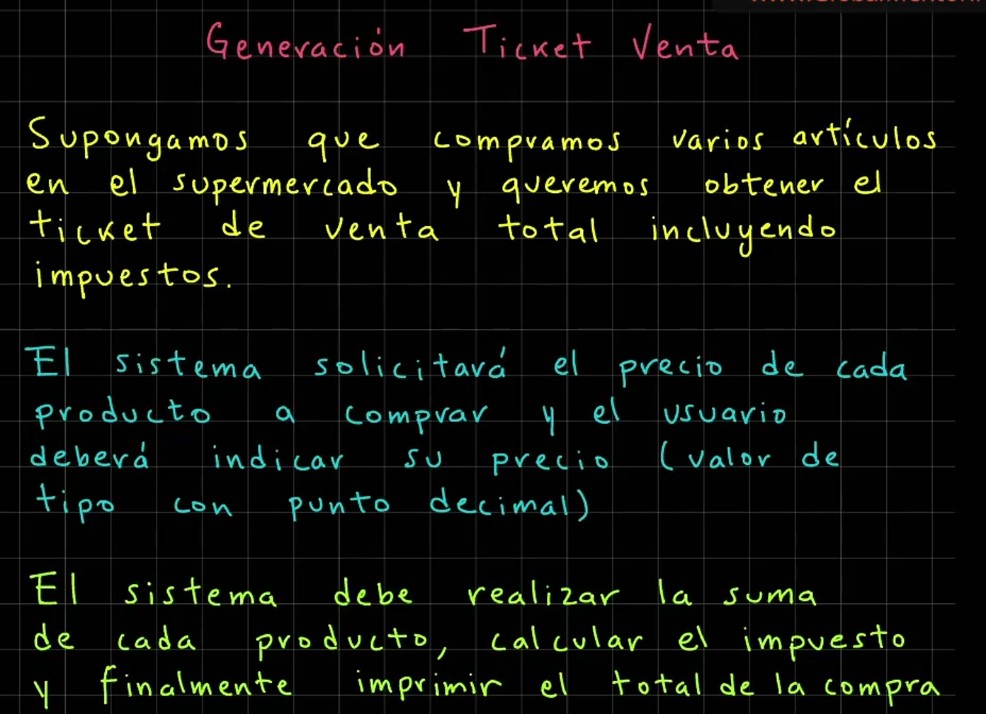 Generación Ticket Venta
Supongamos que compramos varios artículos
en el supermercado y queremos obtener el
ticket de venta total incluyendo
impuestos.
El sistema solicitará el precio de cada
producto a comprar y el usuario
deberá indicar su precio (valor de
tipo con punto decimal)
El sistema debe realizar la suma
de cada producto, calcular el impuesto
y finalmente imprimir el total de la compra